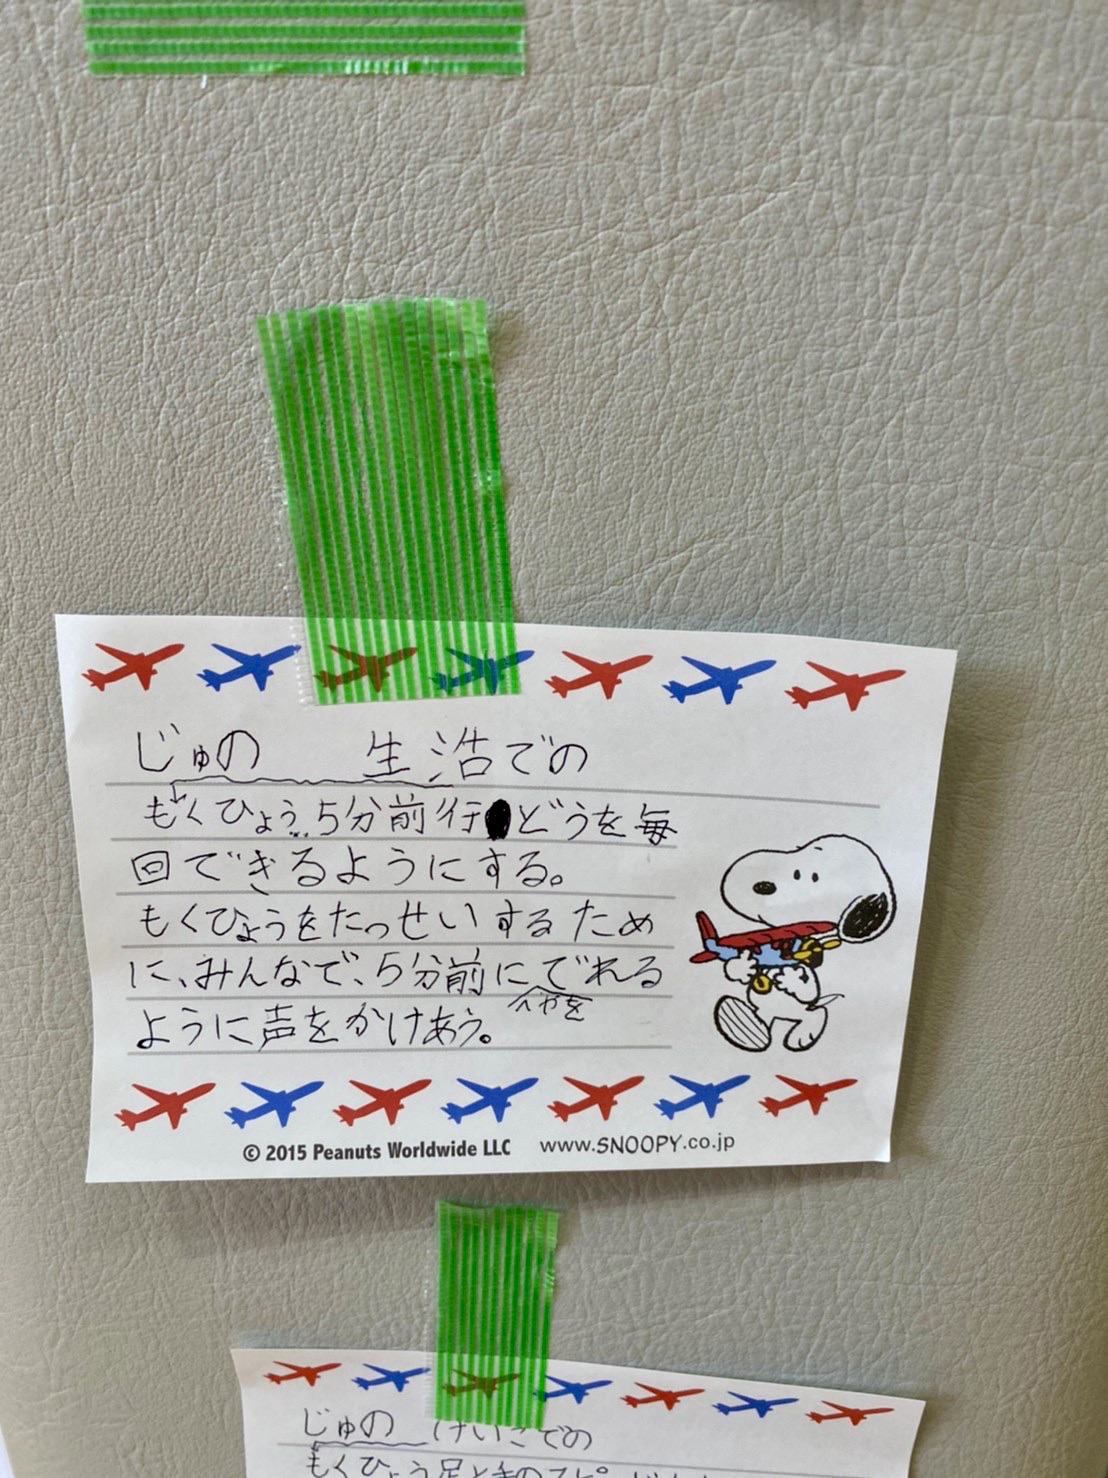 じゅの 生活での
もくひょう 5分前行どうを毎
回できるようにする。
もくひょうをたっせいするため
に、みんなで、5分前にでれる
へやを
ように声をかけあう。
© 2015 Peanuts Worldwide LLC www.SNOOPY.co.jp
じゅの けいこでの
もくひょう足ときの